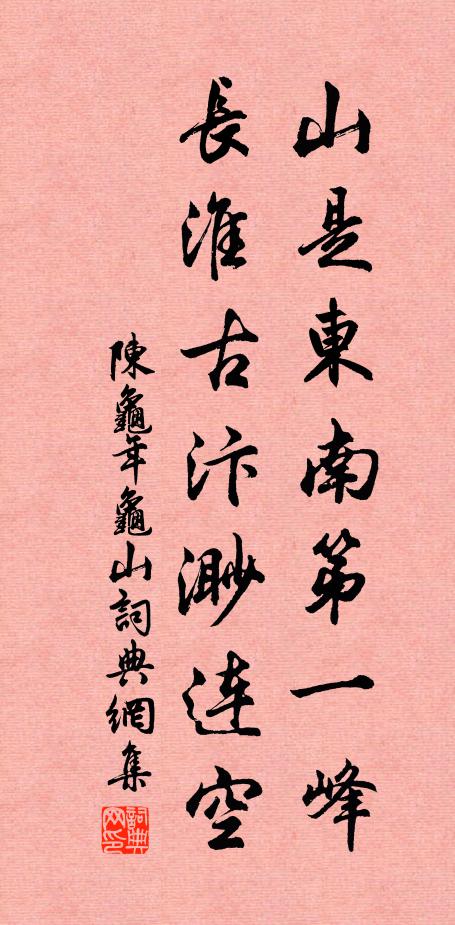 山是東南第一峰
長淮古汴渺連空
陳龜年龜山詞典網集
詞典网印